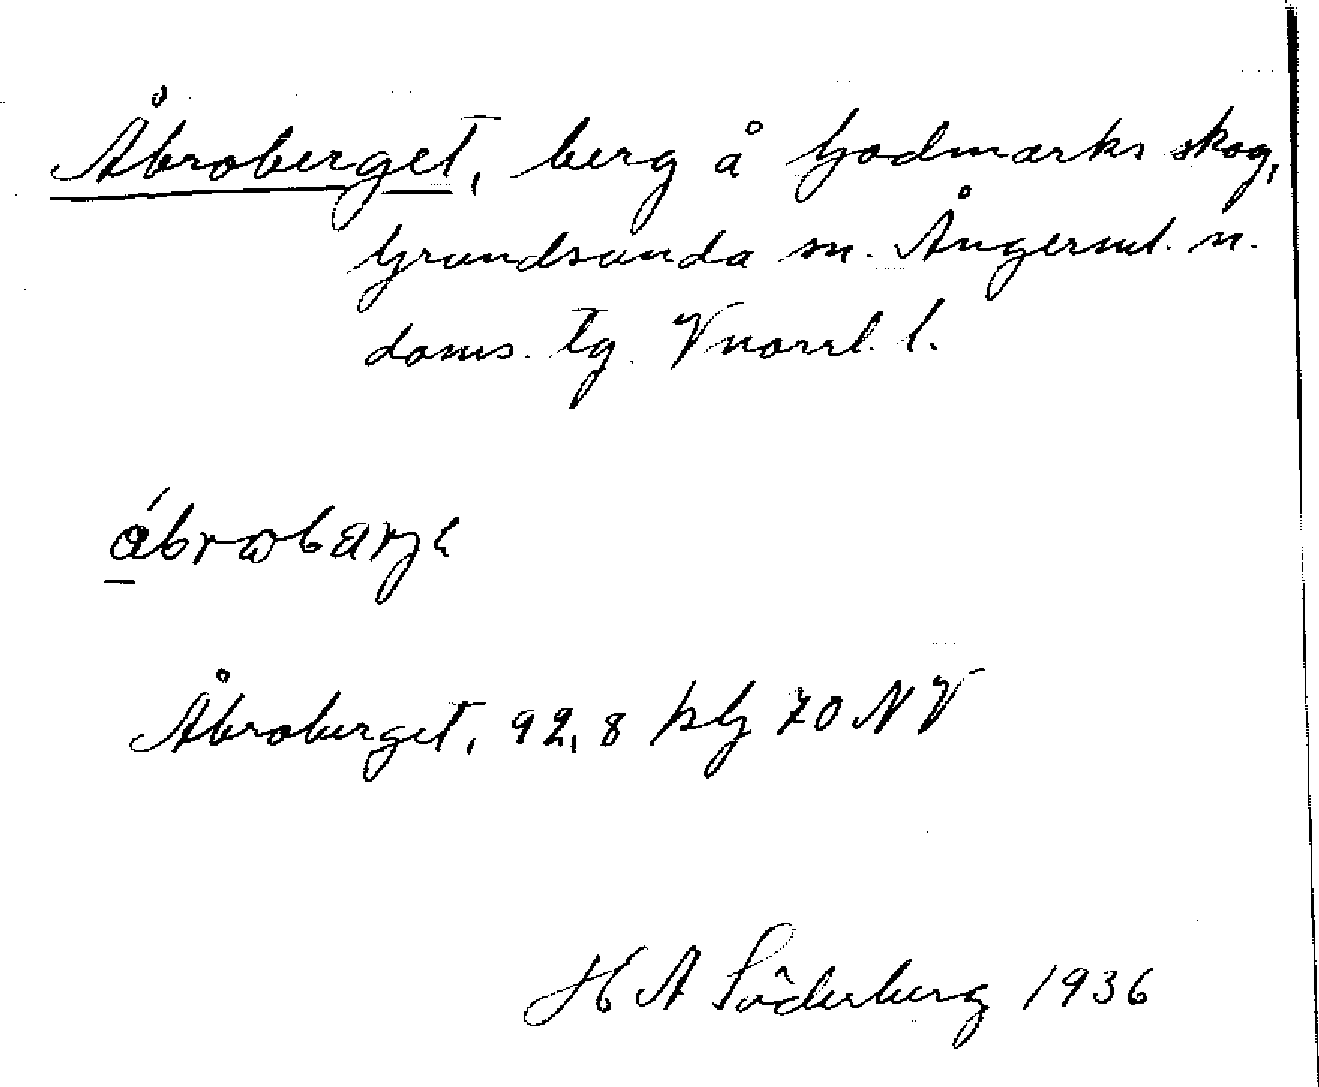 Åbroberget, berg å Godmarks skog,
Grundsunda sn. Ångerml. n.
doms. tg. Vnorrl. l.
Åbroberget, 92,8 70 NV
H A Söderberg 1936